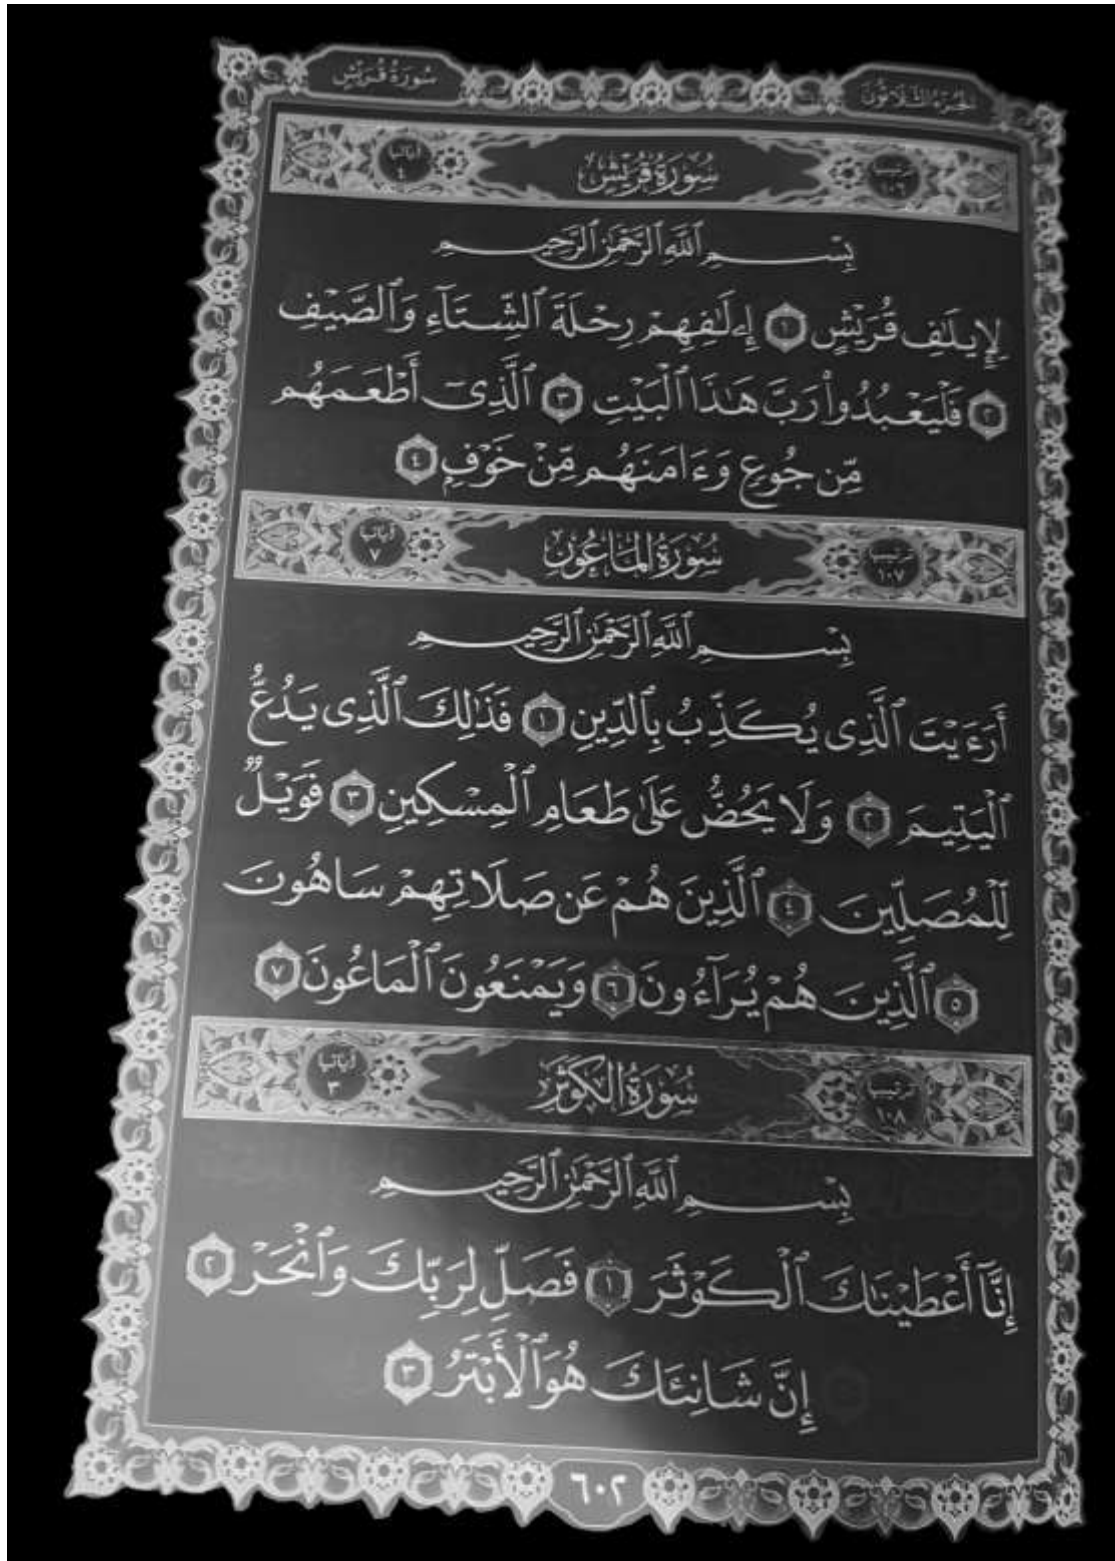 الجزء الثلاثون سورة قريش
ترتيبها ١٠٦ سُورَةُ قُرَيْشٍ آياتها ٤
بِسْمِ ٱللَّهِ ٱلرَّحْمَٰنِ ٱلرَّحِيمِ
لِإِيلَٰفِ قُرَيْشٍ ١ إِۦلَٰفِهِمْ رِحْلَةَ ٱلشِّتَآءِ وَٱلصَّيْفِ
٢ فَلْيَعْبُدُوا۟ رَبَّ هَٰذَا ٱلْبَيْتِ ٣ ٱلَّذِىٓ أَطْعَمَهُم
مِّن جُوعٍ وَءَامَنَهُم مِّنْ خَوْفٍۭ ٤
ترتيبها ١٠٧ سُورَةُ الْمَاعُونِ آياتها ٧
بِسْمِ ٱللَّهِ ٱلرَّحْمَٰنِ ٱلرَّحِيمِ
أَرَءَيْتَ ٱلَّذِى يُكَذِّبُ بِٱلدِّينِ ١ فَذَٰلِكَ ٱلَّذِى يَدُعُّ
ٱلْيَتِيمَ ٢ وَلَا يَحُضُّ عَلَىٰ طَعَامِ ٱلْمِسْكِينِ ٣ فَوَيْلٌ
لِّلْمُصَلِّينَ ٤ ٱلَّذِينَ هُمْ عَن صَلَاتِهِمْ سَاهُونَ
٥ ٱلَّذِينَ هُمْ يُرَآءُونَ ٦ وَيَمْنَعُونَ ٱلْمَاعُونَ ٧
ترتيبها ١٠٨ سُورَةُ الْكَوْثَرِ آياتها ٣
بِسْمِ ٱللَّهِ ٱلرَّحْمَٰنِ ٱلرَّحِيمِ
إِنَّآ أَعْطَيْنَٰكَ ٱلْكَوْثَرَ ١ فَصَلِّ لِرَبِّكَ وَٱنْحَرْ ٢
إِنَّ شَانِئَكَ هُوَ ٱلْأَبْتَرُ ٣
٦٠٢